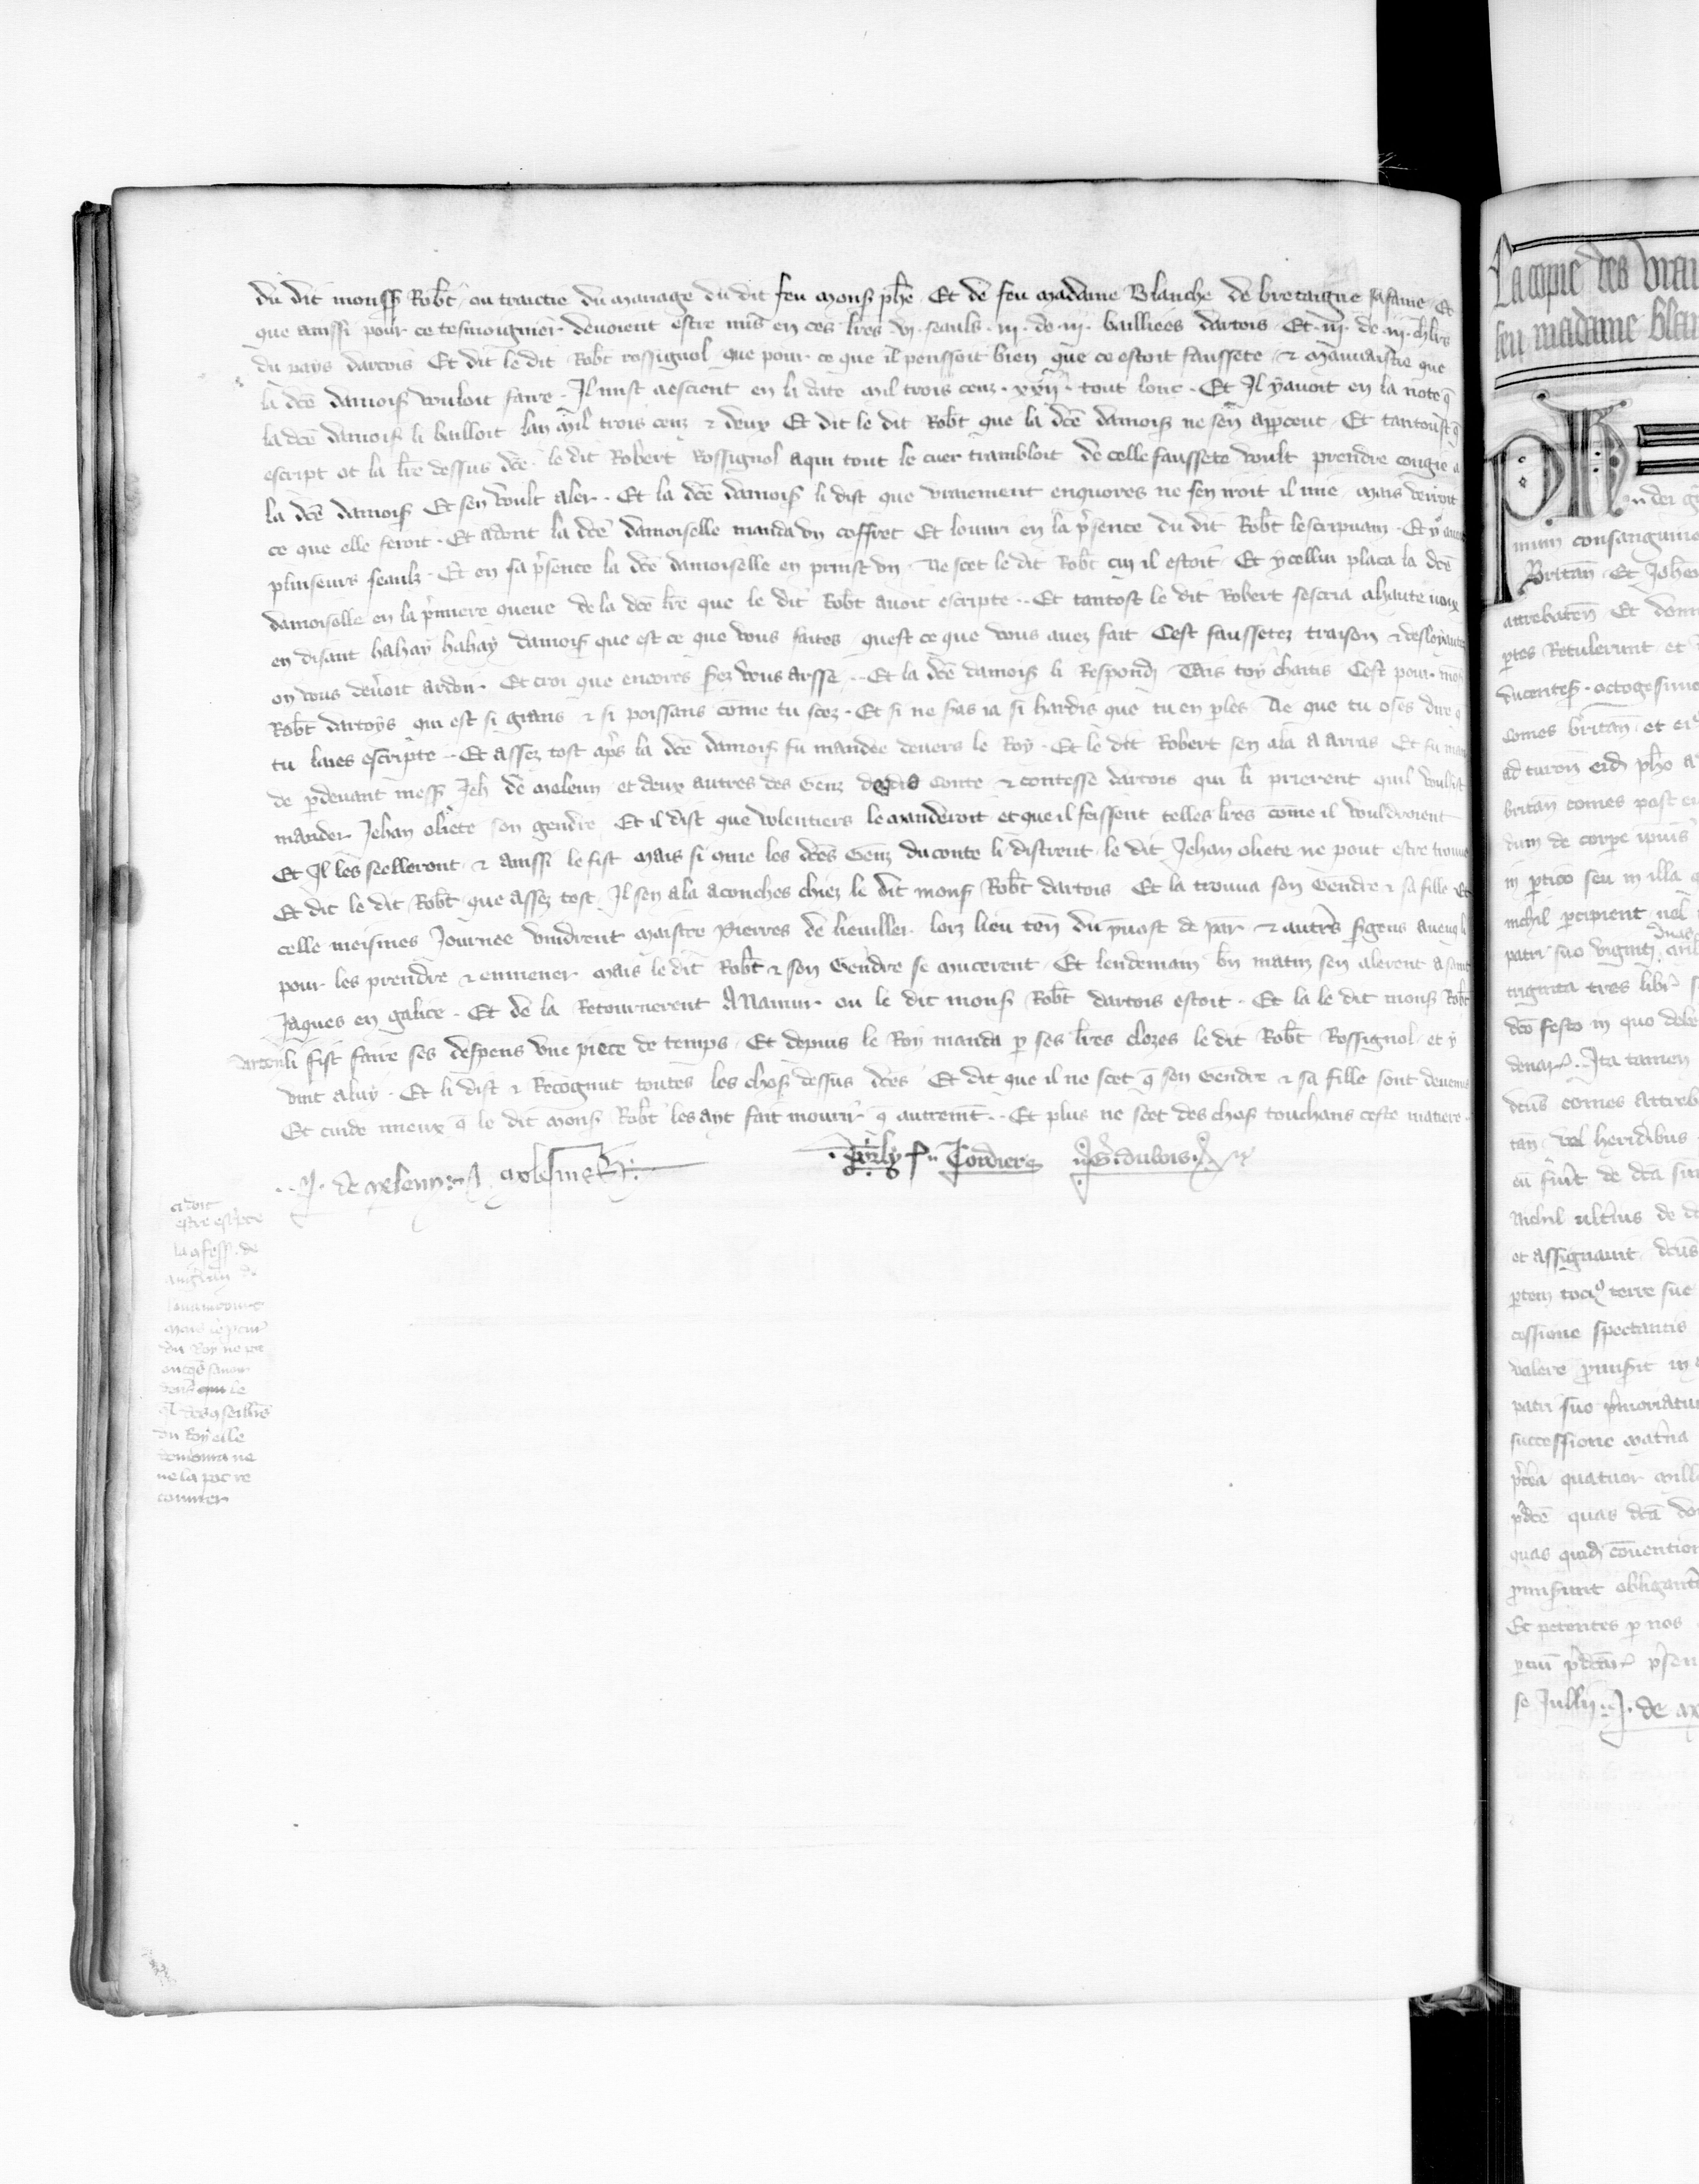 du dit monss Robt ou traictie du mariage du dit feu mons phe Et de feu madame Blanche de bretaigne sa fame Et
que aussi pour ce tesmoignier devoient estre mis en ces lres vi seauls iii de iii bailliees dartois Et iii de iii chlrs
du pays dartois Et dit le dit Robt rossignol que pour ce que il penssoit bien que ce estoit faussete & mauvaistie que
la dce damois vouloit faire Il mist aescient en la date mil trois cenz xxii tout lonc Et Il y avoit en la note q
la dce damois li bailloit lan mil trois cenz & deux Et dit le dit Robt que la dce damois ne sen apceut Et tantoust q
escript ot la lre dessus dce le dit Robert Rossignol a qui tout le cuer trambloit de celle faussete voult prendre congie a
la dce damois Et sen voult aler Et la dce damois li dist que vraiement enquores ne sen iroit il mie mais verroit
ce que elle feroit Et adont la dce damoiselle manda un coffret Et louvri en la psence du dit Robt lescripvain Et y avoit
pluiseurs seaulz Et en sa psence la dce damoiselle en prinst un Ne scet le dit Robt cuy il estoit Et ycellui placa la dce
damoiselle en la pmiere queue de la dce lre que le dit Robt avoit escripte Et tantost le dit Robert sescria a haute voix
en disant hahay hahay damois que est ce que vous faites quest ce que vous avez fait Cest faussetez traison & desloyautez
on vous devroit ardoir Et croi que encores sez vous arsse Et la dce damois li Respondi Tais toy chaitis Cest pour mons
Robt dartoys qui est si grans & si poissans come tu scez Et si ne sas ia si hardis que tu en ples Ne que tu oses dire q
tu laies escripte Et assez tost aps la dce damois fu mandee devers le Roy Et le dit Robert sen ala a arras Et fu
de pdevant mess Jeh de meleun et deux autres des Genz Conte & contesse dartois qui li prierent quil voulsist
mander Jehan oliete son gendre Et il dist que volentiers le manderoit et que il feissent telles lres come il vouldroient
Et Il les seelleront & aussi le fist mais si que les dces Genz du conte li distrent le dit Jehan oliete ne pout estre trouve
Et dit le dit Robt que assez tost Il sen ala a conches chiez le dit mons Robt dartois Et la trouva son Gendre & sa fille Et
celle meismes Journee vindrent maistre Pierres de lieuiller lorz lieu ten du pvost de par & autres sgens aveuq li
pour les prendre & enmener mais le dit Robt & son Gendre se mucerent Et lendemain bn matin sen alerent a saint
Jaques en galice Et de la Retournerent A Namur ou le dit mons Robt dartois estoit Et la le dit mons Robt
dartois li fist faire ses despens une piece de temps Et depuis le Roy manda p ses lres clozes le dit Robt Rossignol et y
vint a luy Et li dist & Recognut toutes les choses dessus dces Et dit que il ne scet q son Gendre & sa fille sont devenus
Et cuide mieux q le dit mons Robt les ayt fait mourir q autremt Et plus ne scet des choses touchans ceste matiere
J de meleun
Cordier
G dubois
ci doit
estre escripte
la qfess de
mais le pcur
du Roy ne pot
oncqs savoir
qi des qseillrs
du Roy elle
demoura ne
ne la pot re
couvrer
La copie des vrai
feu madame blan
mum consanguineo
Britan Et Johen
attrebaten Et dom
ptes Retulerunt et
ducentes octogesimo
comes britan et ei
ad turon eid pho
britan comes post
dum de corpe ipius
in ptico seu in illa
nichil pcipient vel
patri suo viginti
triginta tres libr
dco festo in quo debe
denar Ita tamen
dcus comes attreb
tan vel heridibus
Nichil ultius de
et assignavit dcus
ptem toci terre sue
cessione spectantis
valere pmisit in
patri suo pmoriatur
successione matna
pterea quatuor mill
pdce quas dca do
quas quid convention
pmisunt obligante
Et petentes p nos
se Jullii J de m